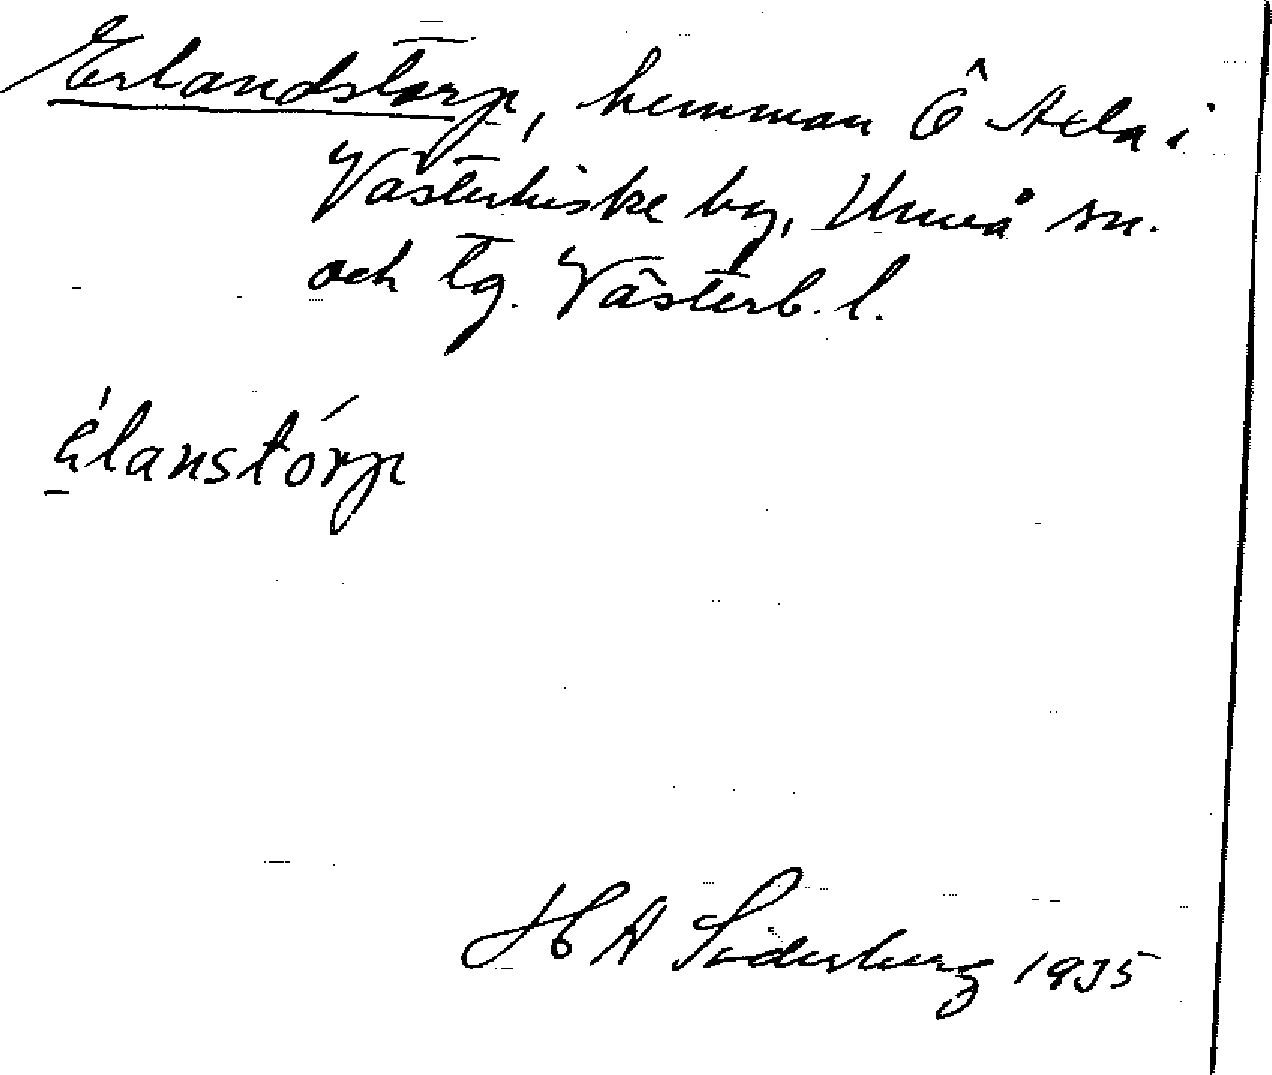 Erlandstorp, hemman Ö Axla i
Västerhiske by, Umeå sn.
och tg. Västerb. l.
élanstórp
H A Söderberg 1935